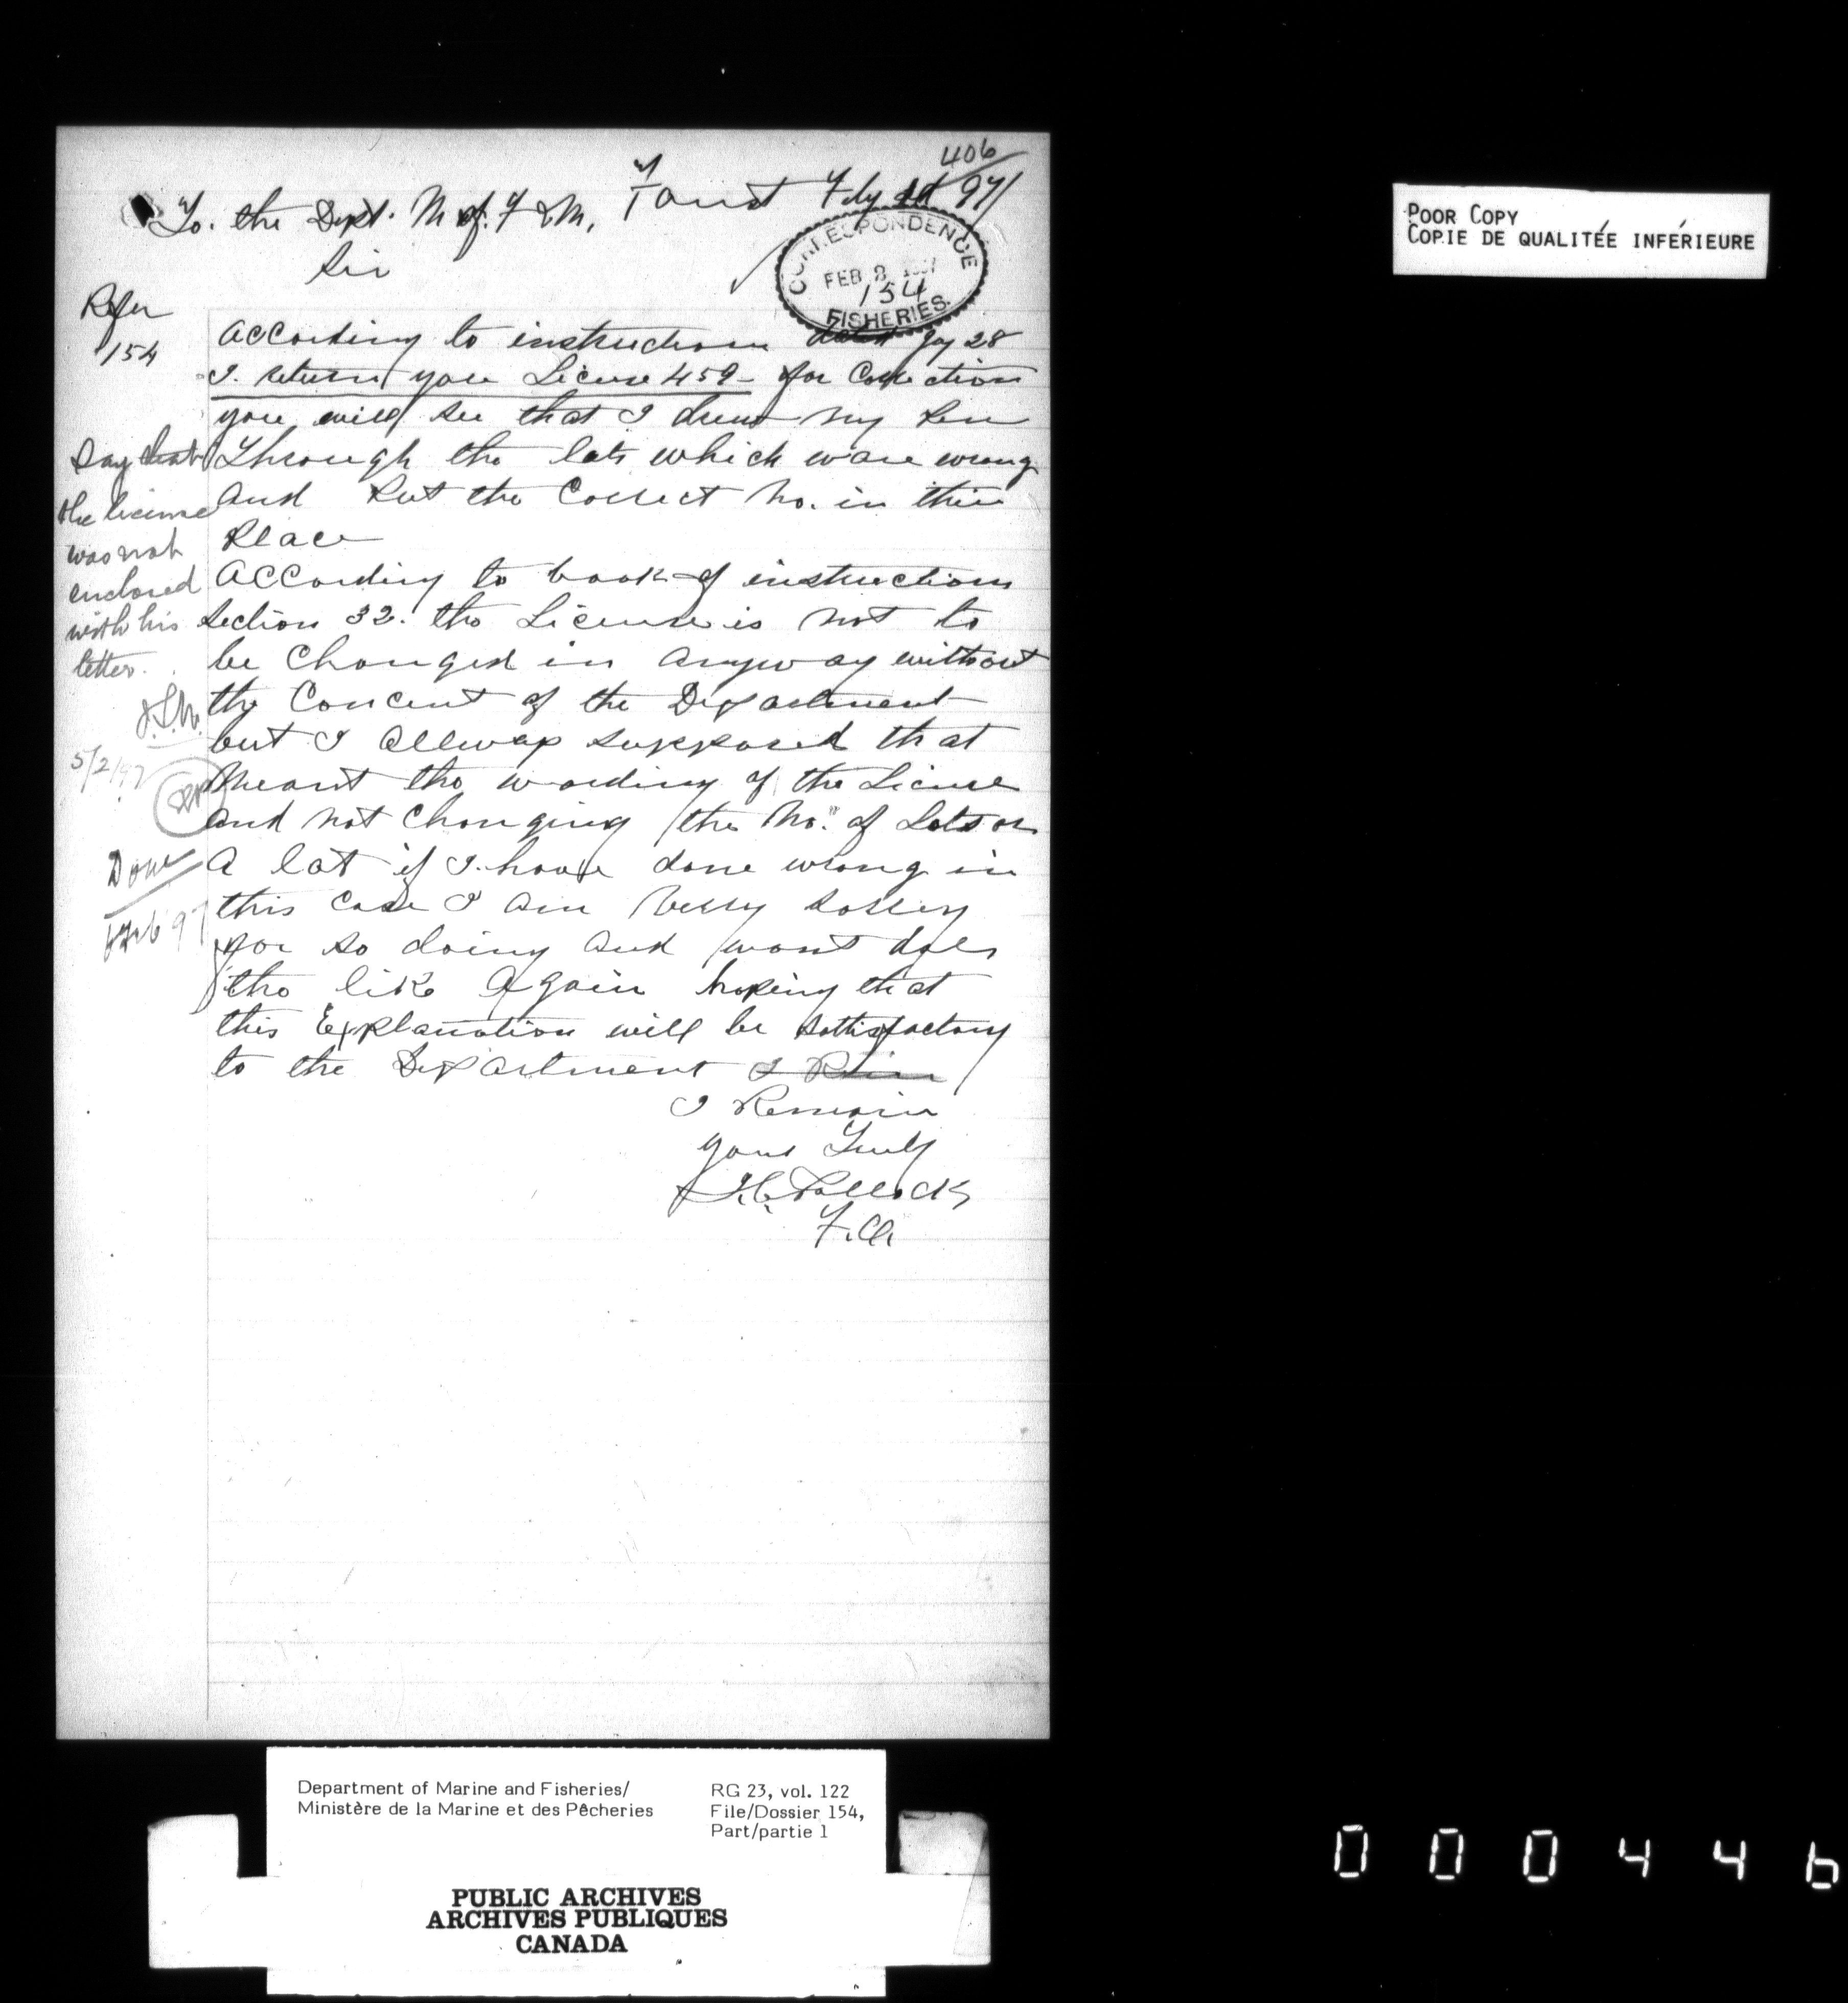 406
To. the Dept. M of. F & M,
Feby 97
Sir
CORRESPONDENCE
FEB 8
154
FISHERIES
Refer
154
According to instructions dated Jay 28
I. return you License 459 - for Corection
you will see that I drew my Pen
Through the lots which ware wrong
and Put the Correct No. in thier
Place
According to book of instructions
Section 32. the License is not to
be Changed in Anyway without
the Concent of the Department
but I Allways supposed that
Meant the wording of the License
and not Changing the No. of Lots or
A lot if I. have done wrong in
this case I am Verry Sorrey
for so doing and wont doo
the like Again hopeing that
this Explanation will be Sattisfactory
to the Department I
I Remain
yours Truly
Pollock
F.O.
Say that
the license
was not
enclosed
with his
letter.
5/2/97
Done
Feb 97
POOR COPY
COPIE DE QUALITÉE INFÉRIEURE
Department of Marine and Fisheries/
Ministère de la Marine et des Pêcheries
RG 23, vol. 122
File/Dossier 154,
Part/partie 1
PUBLIC ARCHIVES
ARCHIVES PUBLIQUES
CANADA
000446